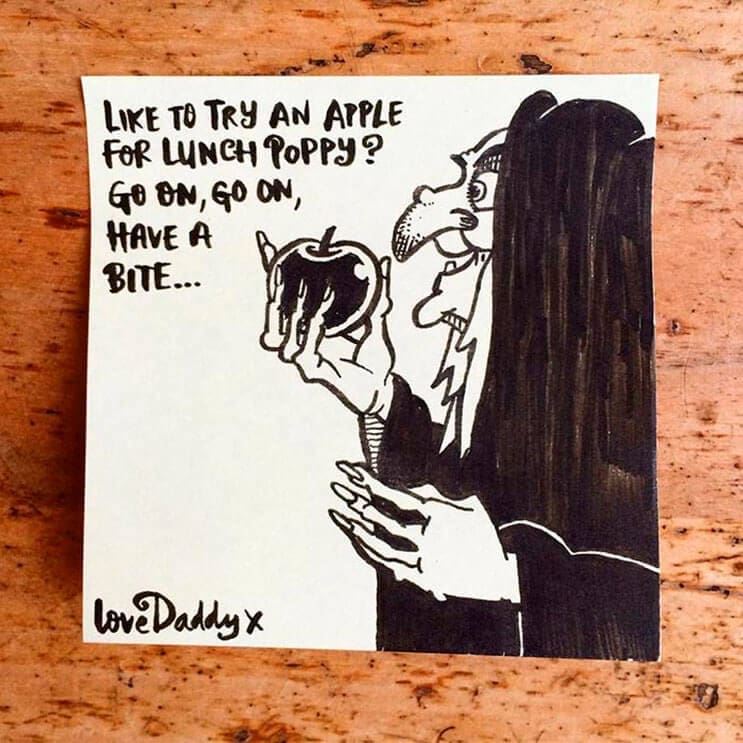 LIKE TO TRY AN APPLE
FOR LUNCH POPPY?
GO ON, GO ON,
HAVE A
BITE...
love Daddy x